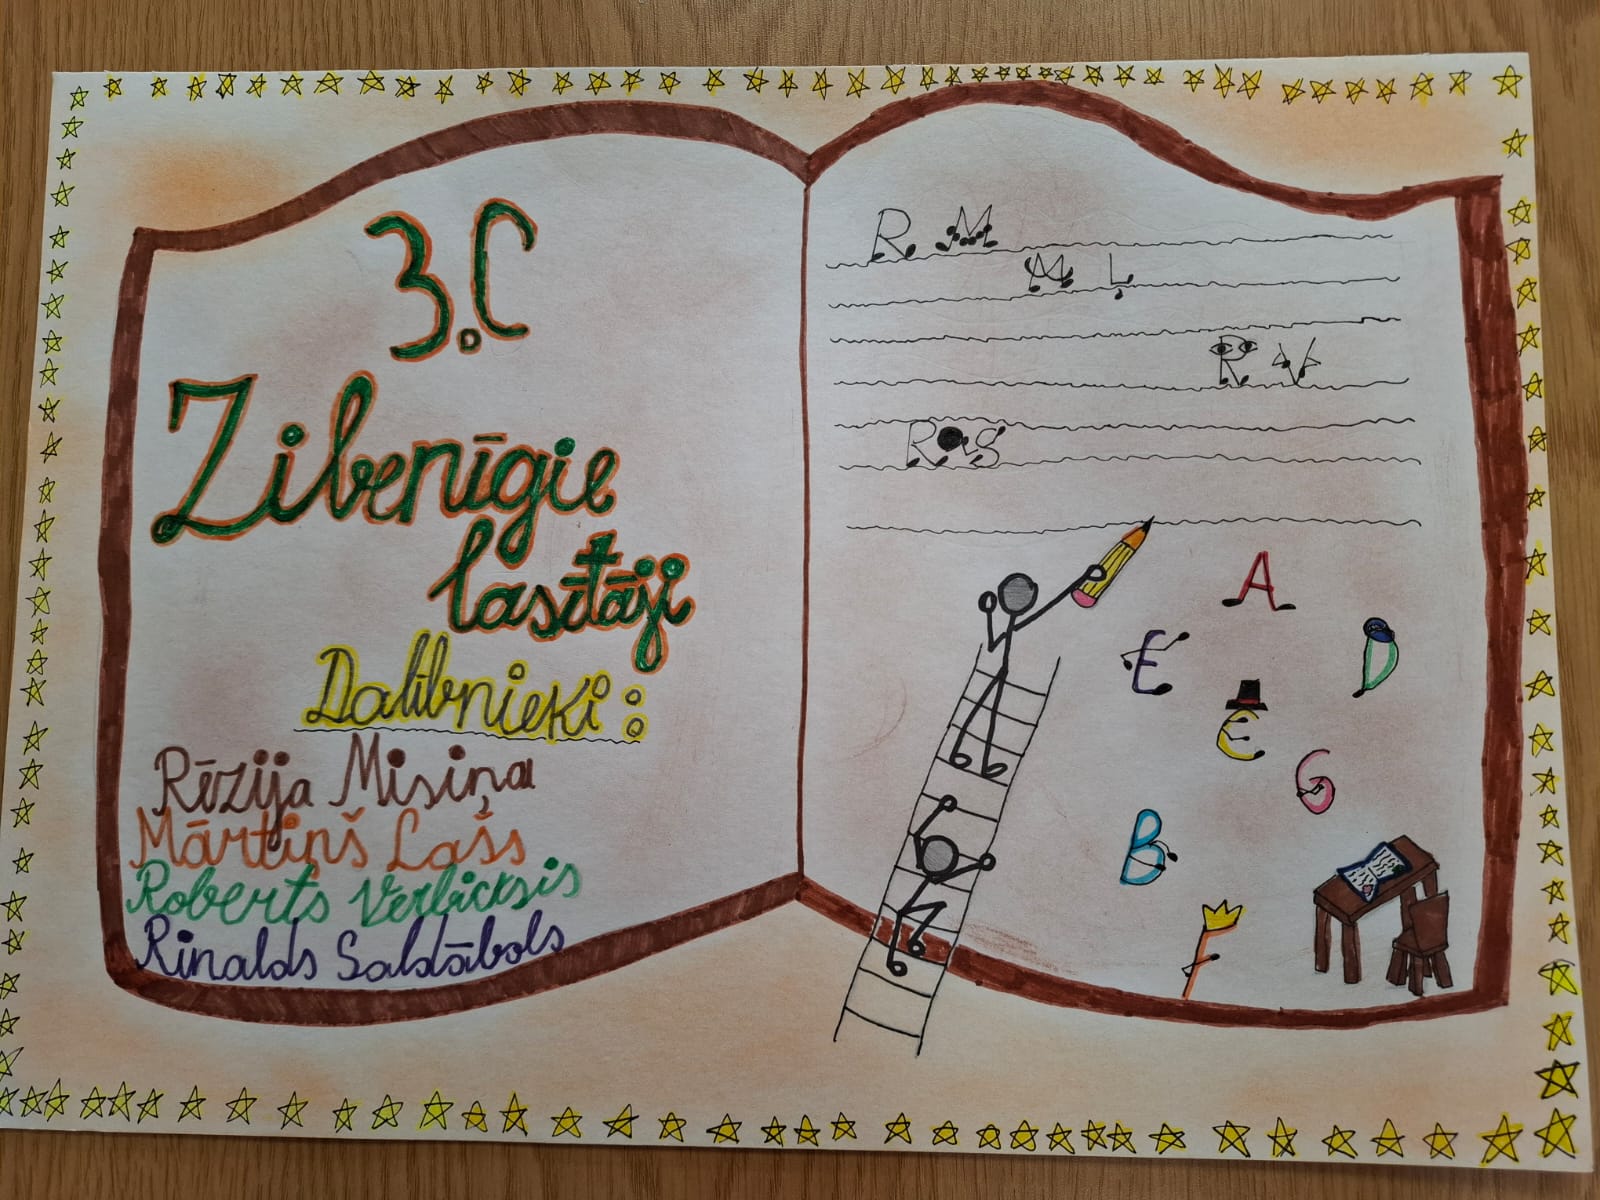 3.C
Zibenīgie
lasītāji
Dalībnieki:
Rēzija Misiņa
Mārtiņš Lašs
Roberts Verbickis
Rinalds Saldābols
R. M
M Ļ
R V
R S
A
E
D
E
G
B
F